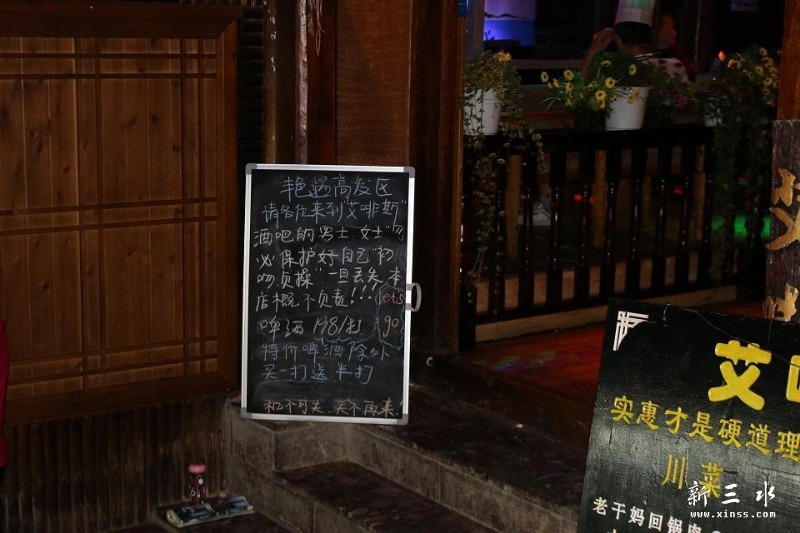 艳遇高发区
情各位来到"艾啡斯"
酒吧的男士.女士"勿
必保护好自己"初
吻.贞操"一旦丢失.本
店概不负责!!!
lets
go
啤酒198/打
特价啤酒除外
买一打送半打
机不可失.失不再来!
艾
实惠才是硬道理
川菜
老干妈回锅肉
新三水
www.xinss.com